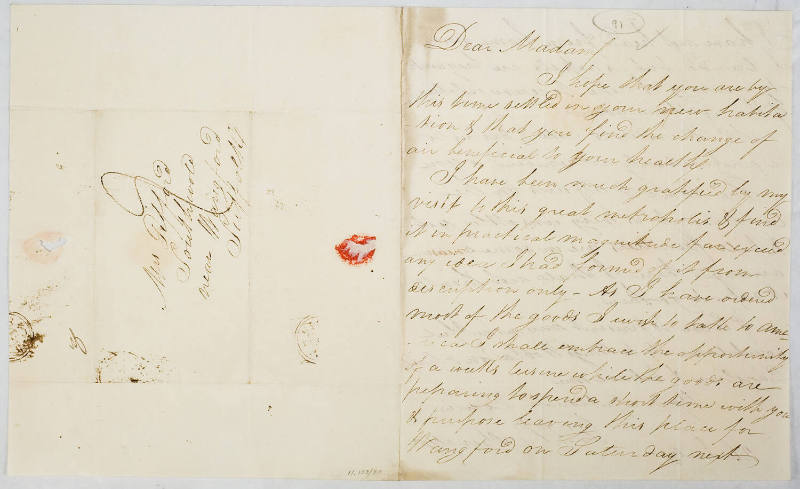 Dear Madam
I hope that you are by
this time settled in your new habita
-tion & that you find the change of
air beneficial to your health.
I have been much gratified by my
visit to this great metropolis & find
it in practical magnitude far exceed
any idea I had formed of it from
description only - As I have ordered
most of the goods I wish to take to Ame-
-rica I shall embrace the opportunity
of a weeks leisure while the goods are
preparing to spend a short time with you
& purpose leaving this place for
Wangford on Saturday next.
Mrs
Southwold
near Wangford
Suffolk